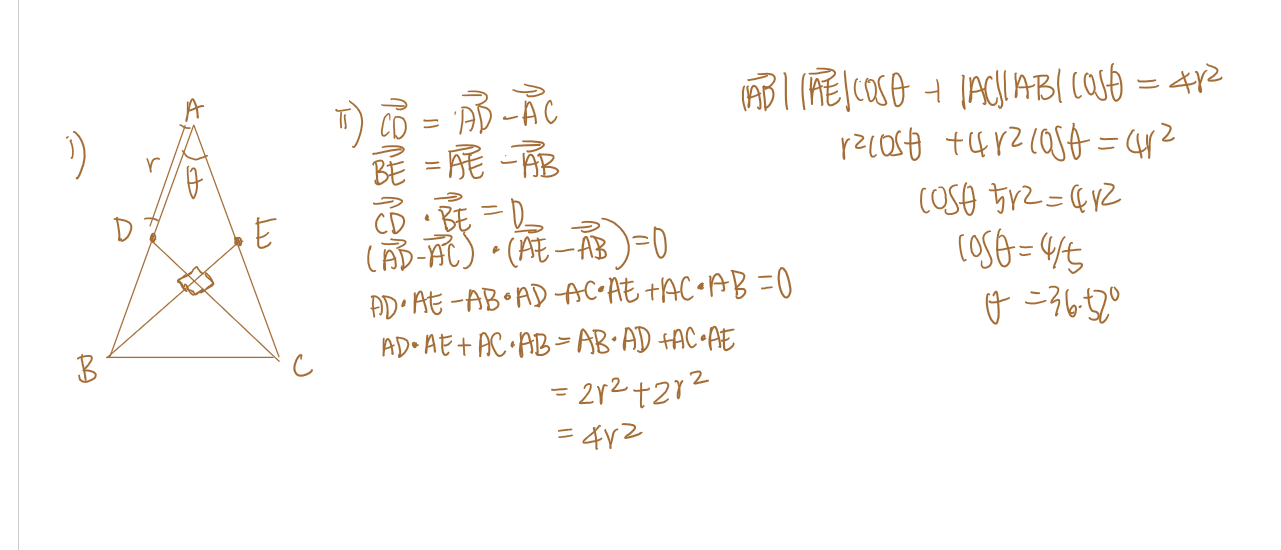 i)
A
r
θ
D
E
B
C
ii) CD = AD - AC
BE = AE - AB
CD · BE = 0
(AD - AC) · (AE - AB) = 0
AD·AE - AB·AD - AC·AE + AC·AB = 0
AD·AE + AC·AB = AB·AD + AC·AE
= 2r² + 2r²
= 4r²
|AD| |AE| cosθ + |AC||AB| cosθ = 4r²
r²cosθ + 4r²cosθ = 4r²
cosθ 5r² = 4r²
cosθ = 4/5
θ = 36.52°